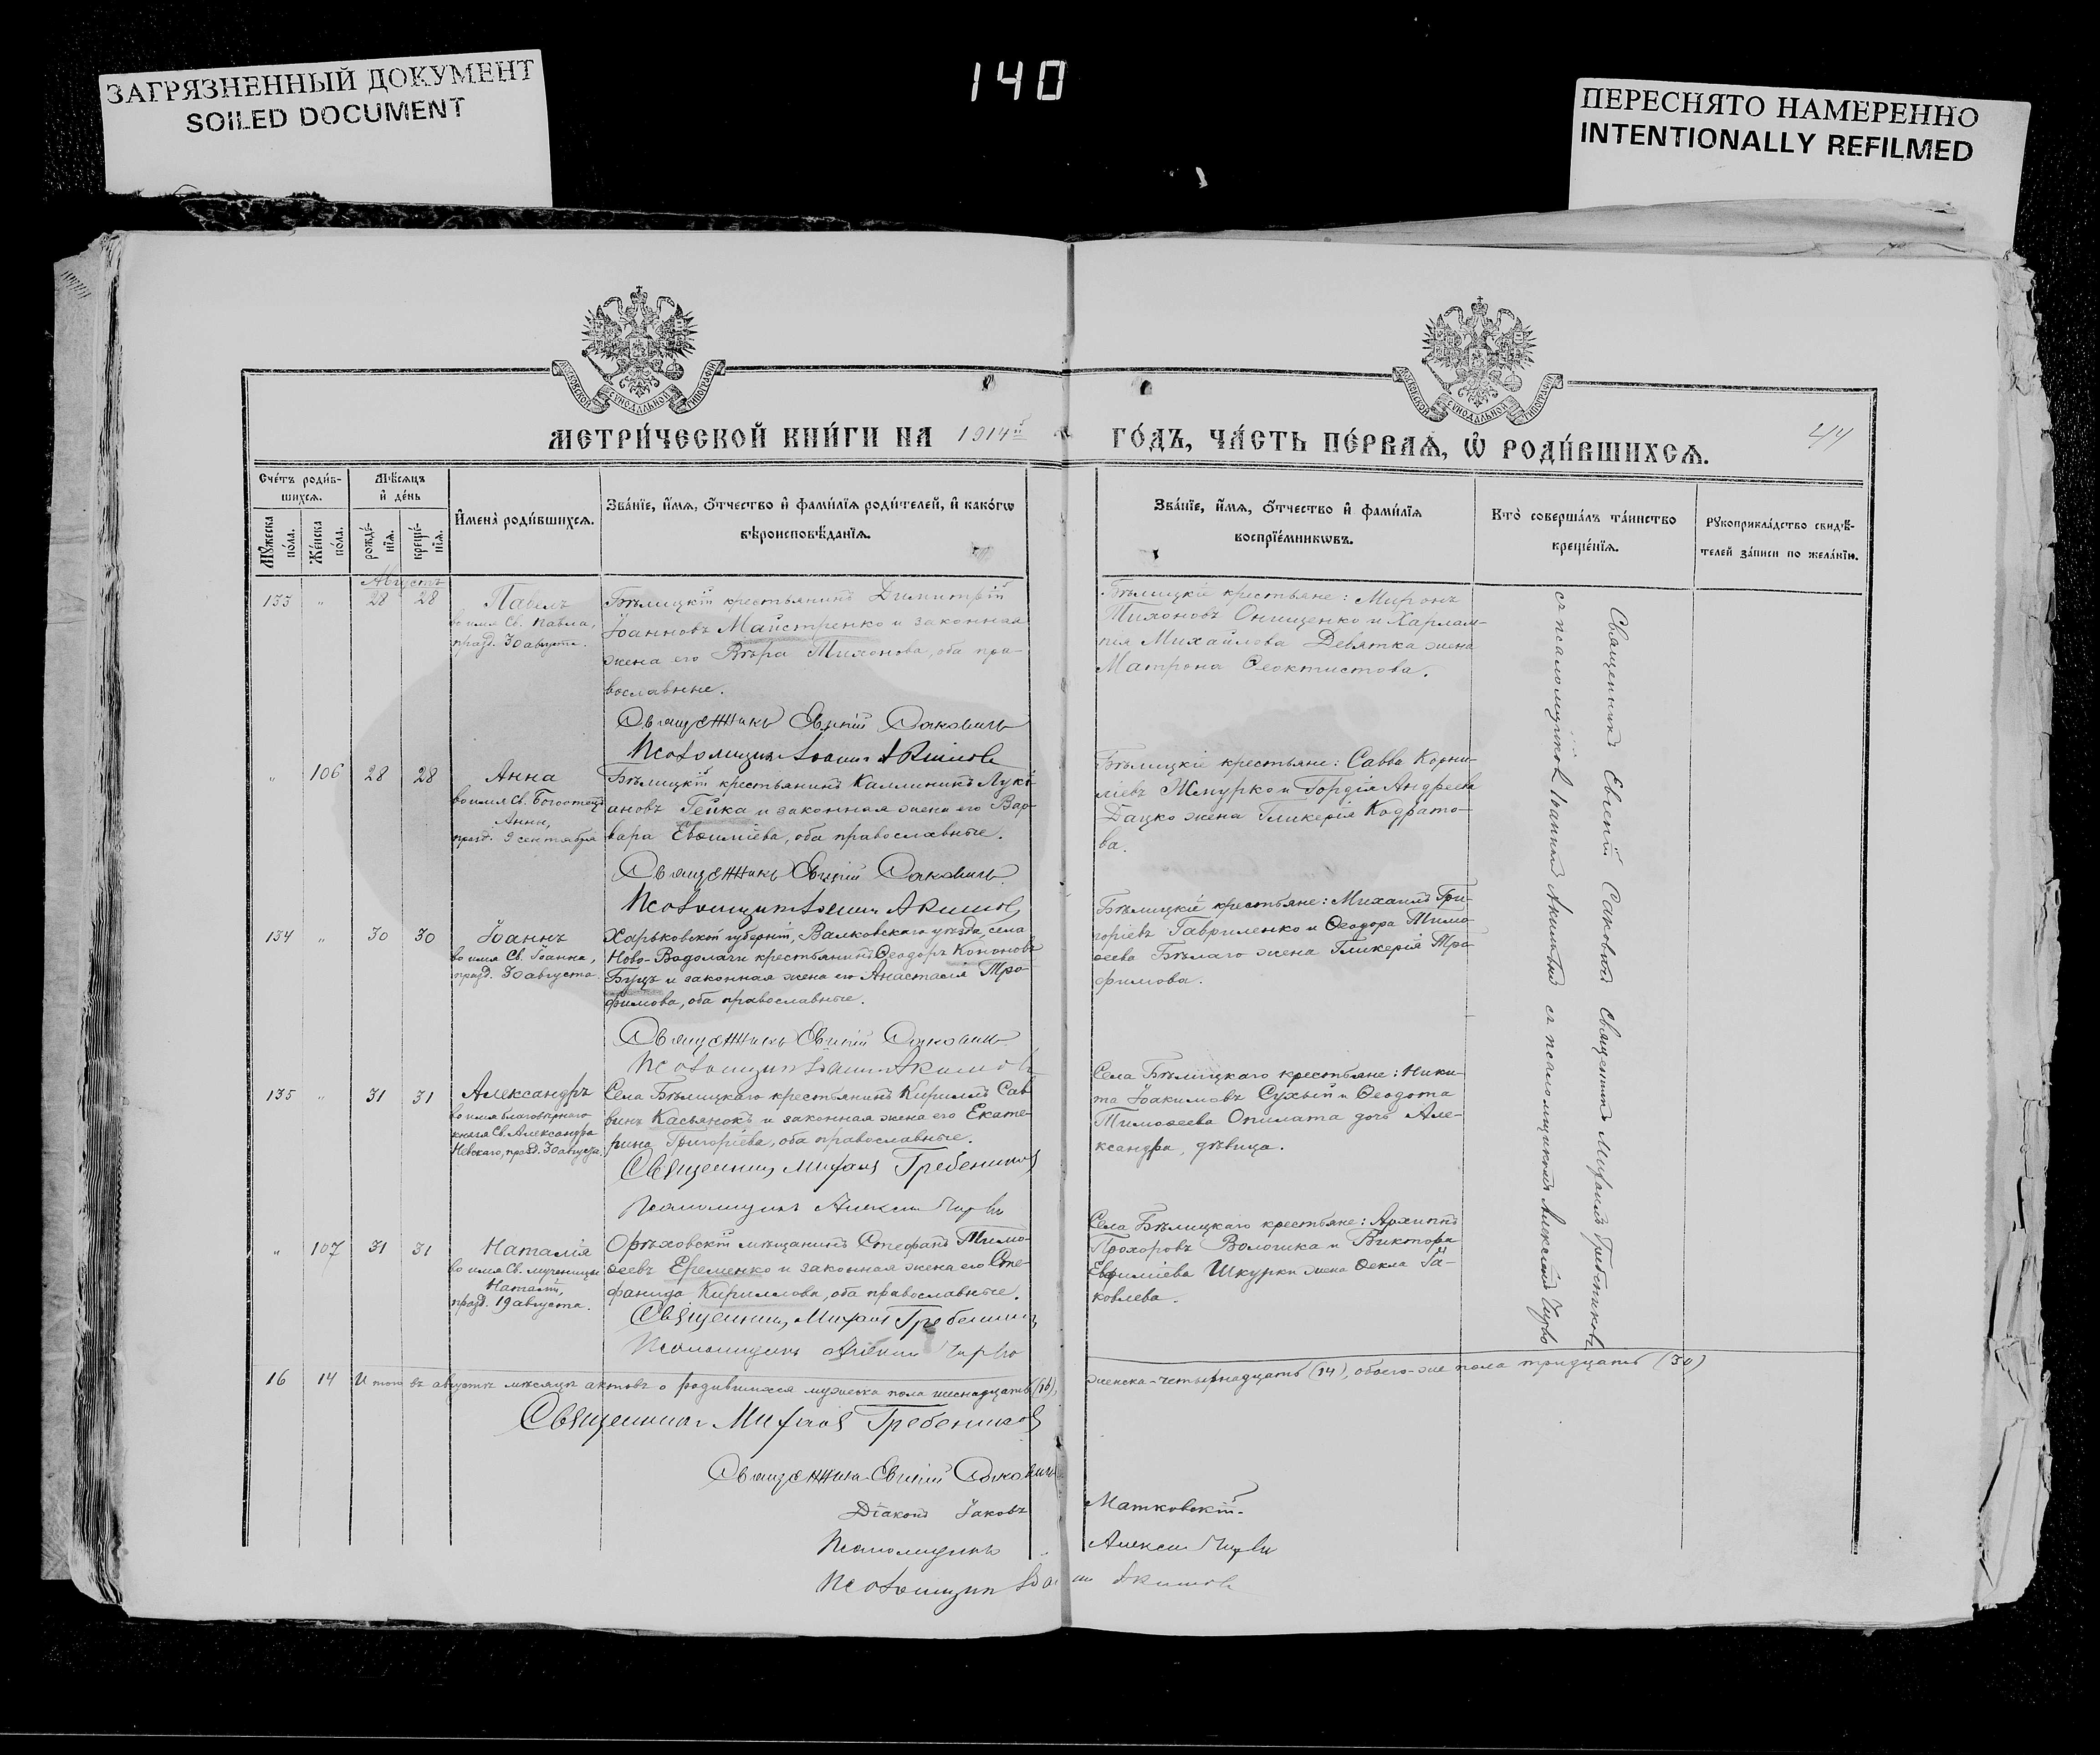 ЗАГРЯЗНЕННЫЙ ДОКУМЕНТ
SOILED DOCUMENT
140
ПЕРЕСНЯТО НАМЕРЕННО
INTENTIONALLY REFILMED
МОСКОВСКОЙ СѴНОДАЛЬНОЙ ТИПОГРАФІИ
МОСКОВСКОЙ СѴНОДАЛЬНОЙ ТИПОГРАФІИ
МЕТРИ́ЧЕСКОЙ КНИ́ГИ НА 1914й
ГО́ДЪ, ЧА́СТЬ ПЕ́РВАѦ, Ѽ РОДИ́ВШИХСѦ.
44
Сче́тъ роди́в-
шихсѧ.
Мѣ́сѧцъ
и҆ де́нь
Мꙋ́жеска
по́ла.
Же́нска
по́ла.
рожде́-
нїѧ.
креще́-
нїѧ.
И҆мена̀ роди́вшихсѧ.
Зва́нїе, и҆́мѧ, ѻ҆́тчество и҆ фами́лїѧ роди́телей, и҆ како́гѡ
вѣроисповѣ́данїѧ.
Зва́нїе, и҆́мѧ, ѻ҆́тчество и҆ фами́лїѧ
воспрїе́мникѡвъ.
Кто̀ соверша́лъ та́инство
креще́нїѧ.
Рꙋкоприкла́дство свидѣ́-
телей за́писи по жела́нїю.
Августъ
133 " 28 28
Павелъ
во имя Св. Павла,
празд. 30 августа.
Бѣлицкій крестьянинъ Димитрій
Іоанновъ Майстренко и законная
жена его Вѣра Тихонова, оба пра-
вославные.
Священникъ Евгеній Саковичъ
Псаломщикъ Іоаннъ Акимовъ
Бѣлицкіе крестьяне: Миронъ
Тихоновъ Онищенко и Харлам-
пія Михайлова Девятка жена
Матрона Ѳеоктистова.
" 106 28 28
Анна
во имя Св. Богоотецъ
Анны,
празд. 9 сентября
Бѣлицкій крестьянинъ Каллиникъ Луки-
ановъ Гейка и законная жена его Вар-
вара Евѳиміева, оба православные.
Священникъ Евгеній Саковичъ
Псаломщикъ Іоаннъ Акимовъ
Бѣлицкіе крестьяне: Савва Корни-
ліевъ Шкурко и Гордія Андреева
Дацко жена Гликерія Кодрато-
ва.
134 " 30 30
Іоаннъ
во имя Св. Іоанна,
празд. 30 августа.
Харьковской губерніи, Валковскаго уѣзда, села
Ново-Водолаги крестьянинъ Ѳеодоръ Кононовъ
Буцъ и законная жена его Анастасія Тро-
фимова, оба православные.
Священникъ Евгеній Саковичъ
Псаломщикъ Іоаннъ Акимовъ
Бѣлицкіе крестьяне: Михаилъ Гри-
горіевъ Гавриленко и Ѳеодора Тимо-
ѳеева Бѣлаго жена Гликерія Тро-
фимова.
135 " 31 31
Александръ
во имя благовѣрнаго
князя Св. Александра
Невскаго, празд. 30 августа.
Села Бѣлицкаго крестьянинъ Кириллъ Сав-
винъ Касьянокъ и законная жена его Екате-
рина Григоріева, оба православные.
Священникъ Михаилъ Гребениковъ
Псаломщикъ Алексій
Села Бѣлицкаго крестьяне: Ники-
та Іоакимовъ Сухый и Ѳеодота
Тимоѳеева Опилата дочь Але-
ксандра, дѣвица.
" 107 31 31
Наталія
во имя Св. мученицы
Наталіи,
празд. 19 августа.
Орѣховскій мѣщанинъ Стефанъ Тимо-
ѳеевъ Еременко и законная жена его Сте-
фанида Кириллова, оба православные.
Священникъ Михаилъ Гребениковъ
Псаломщикъ Алексій
Села Бѣлицкаго крестьяне: Архиппъ
Прохоровъ Вологика и Виктора
Евфиміева Шкурки жена Ѳекла Іа-
ковлева.
Священникъ Евгеній Саковичъ Священникъ Михаилъ Гребениковъ
съ псаломщикомъ Іоанномъ Акимовымъ съ псаломщикомъ Алексіемъ
16 14 Итого въ августѣ мѣсяцѣ актовъ о родившихся мужеска пола шеснадцать (16),
женска-четырнадцать (14), обоего-же пола тридцать (30)
Священникъ Михаилъ Гребениковъ
Священникъ Евгеній Саковичъ
Діаконъ Іаковъ Матковскій.
Псаломщикъ Алексій
Псаломщикъ Іоаннъ Акимовъ